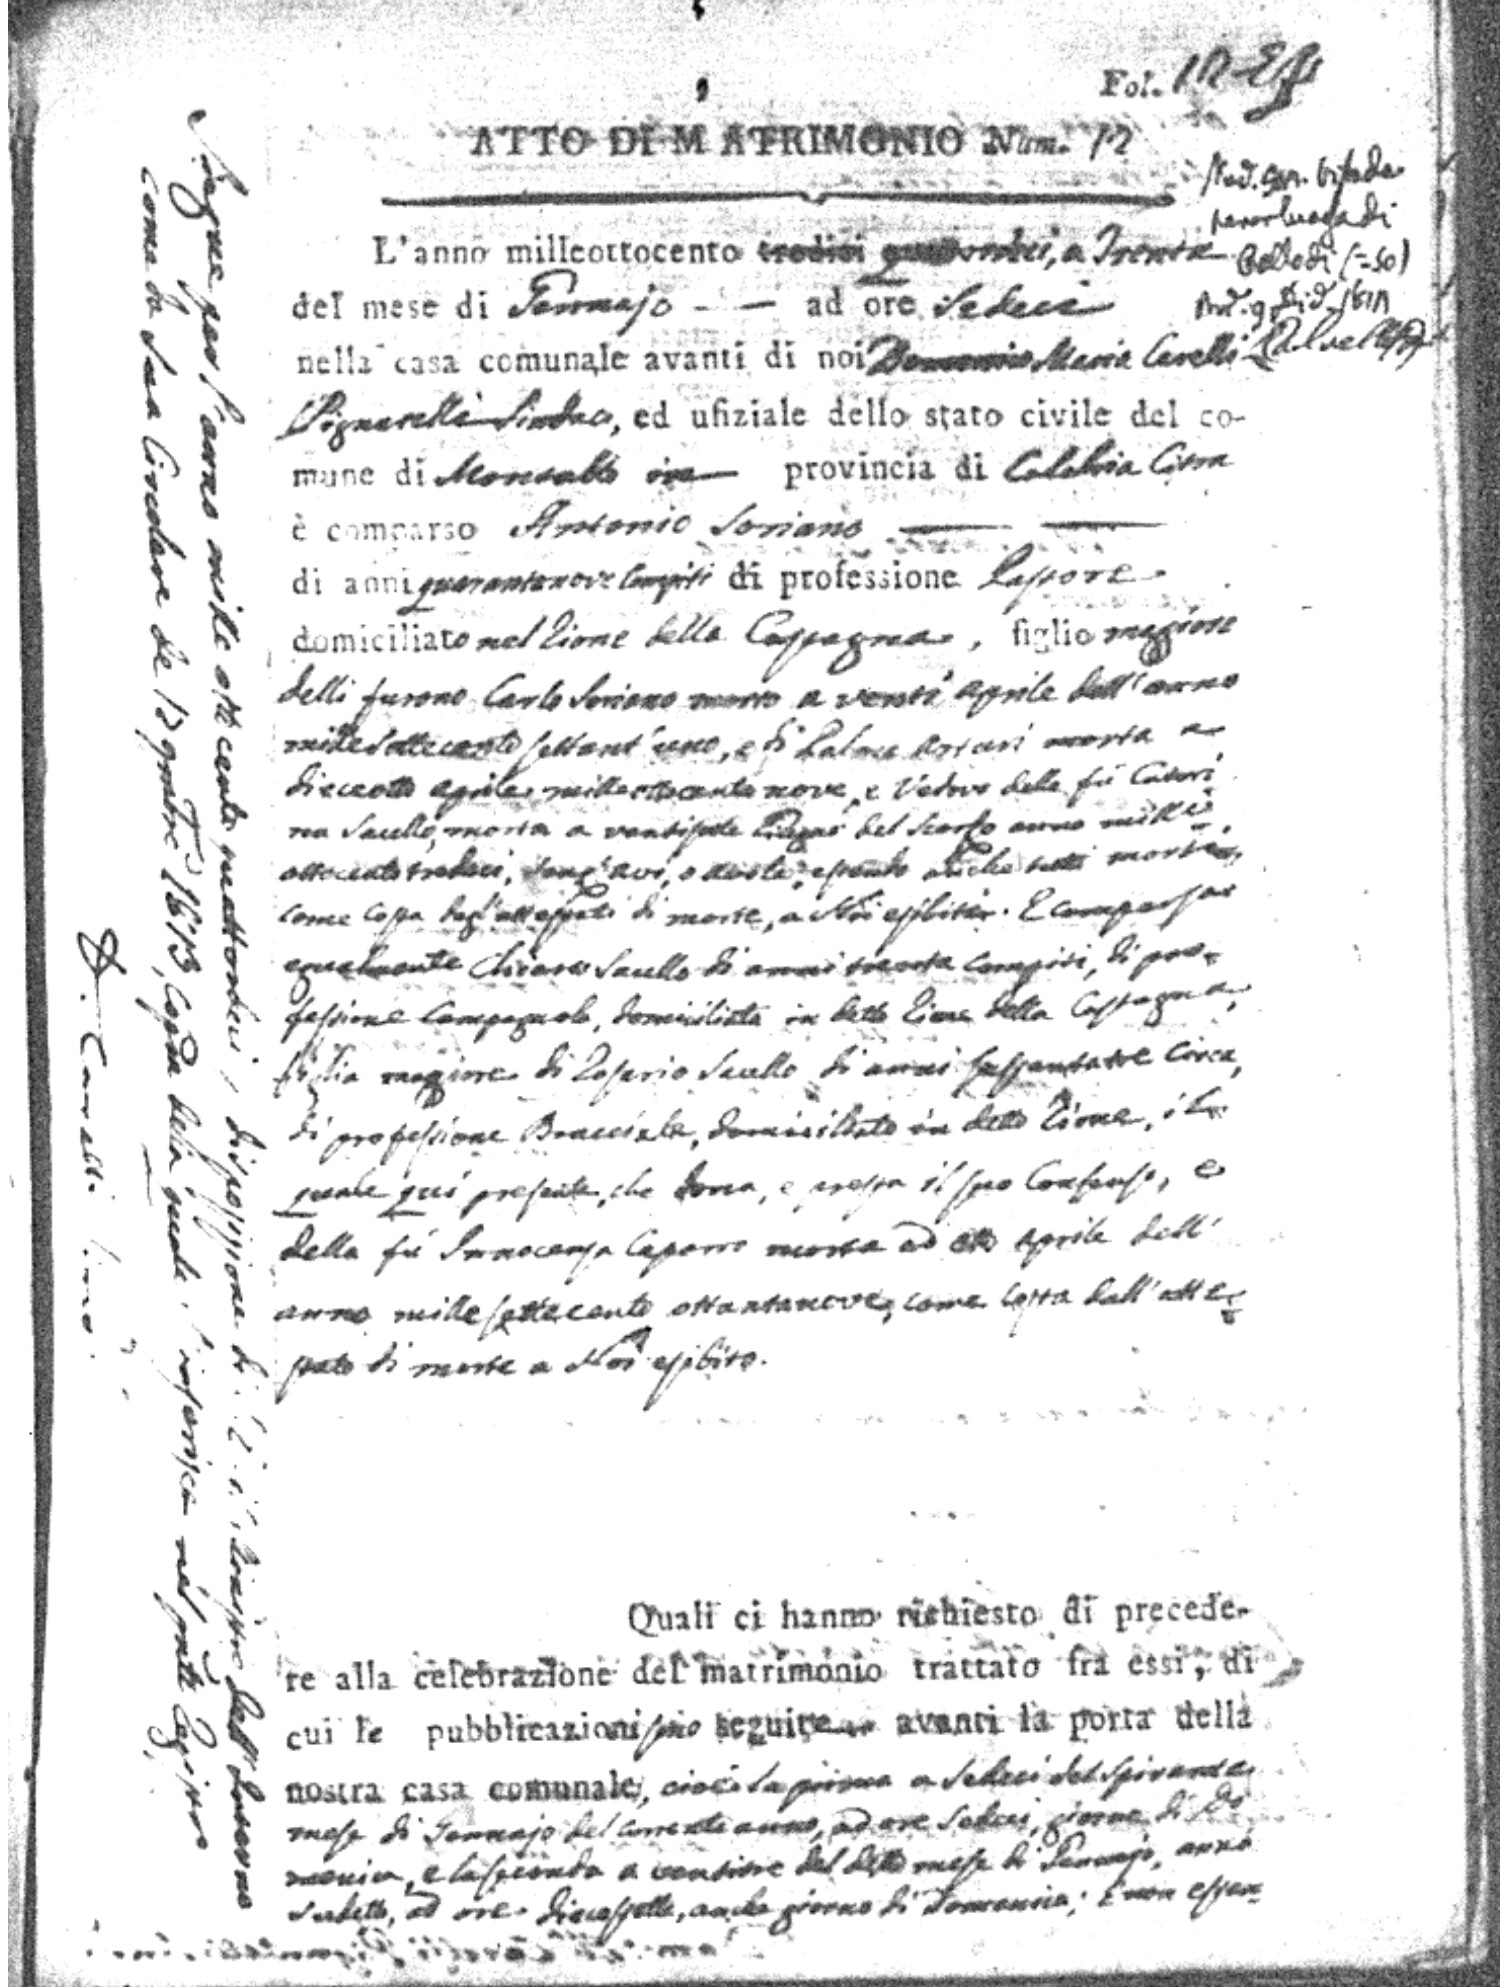 Fol. 12
ATTO DI MATRIMONIO Num. 12
L'anno milleottocento tredici quattordici, a Trenta
del mese di Gennajo ad ore Sedeci
nella casa comunale avanti di noi Maria Carelli
Pignatelli Sindaco, ed ufiziale dello stato civile del co-
mune di Montalto in provincia di Calabria Citra
è comparso Antonio Soriano
di anni quarantanove compiti di professione Pastore
domiciliato nel Rione della Castagna, figlio maggiore
delli furono Carlo Soriano morto a venti Aprile dell'anno
mille settecento settant'uno, e di Palma morta a
dieceotto Aprile milleottocento nove, e Vedovo della fù Cateri
na Saullo, morta a ventisette del scorso anno mille
ottocento tredeci, avi, essendo anche tutti morti,
come costa degl'attestati di morte, a Noi esibiti. E comparsa
egualmente Chiara Saullo di anni trenta compiti, di pro-
fessione Campagnola, domiciliata in detto Rione della Castagna,
figlia maggiore di Rosario Saullo di anni sessantatre circa,
di professione Bracciale, domiciliato in detto Rione, il
quale quì presente, che dona, e presta il suo Consenso, e
della fù Innocenza Caporro morta ad otto Aprile dell'
anno mille settecento ottantanove, come costa dall'atte-
stato di morte a Noi esibito.
Quali ci hanno richiesto di precede-
re alla celebrazione del matrimonio trattato fra essi, di
cui le pubblicazioni sono seguite avanti la porta della
nostra casa comunale, cioè la prima a Sedeci del spirante
mese di Gennajo del corrente anno, ad ore Sedeci, giorno di Do
menica, e la seconda a ventitre del detto mese di Gennajo, anno
sudetto, ad ore dieciessette, anche giorno di Domenica; E non essen-
Segue per l'anno mille otto cento quattordeci, disposizione di dell' Interno
come da sua Circolare de 12 9mbre 1813, Copia della quale s'inserisce nel pnte Registro
Carelli